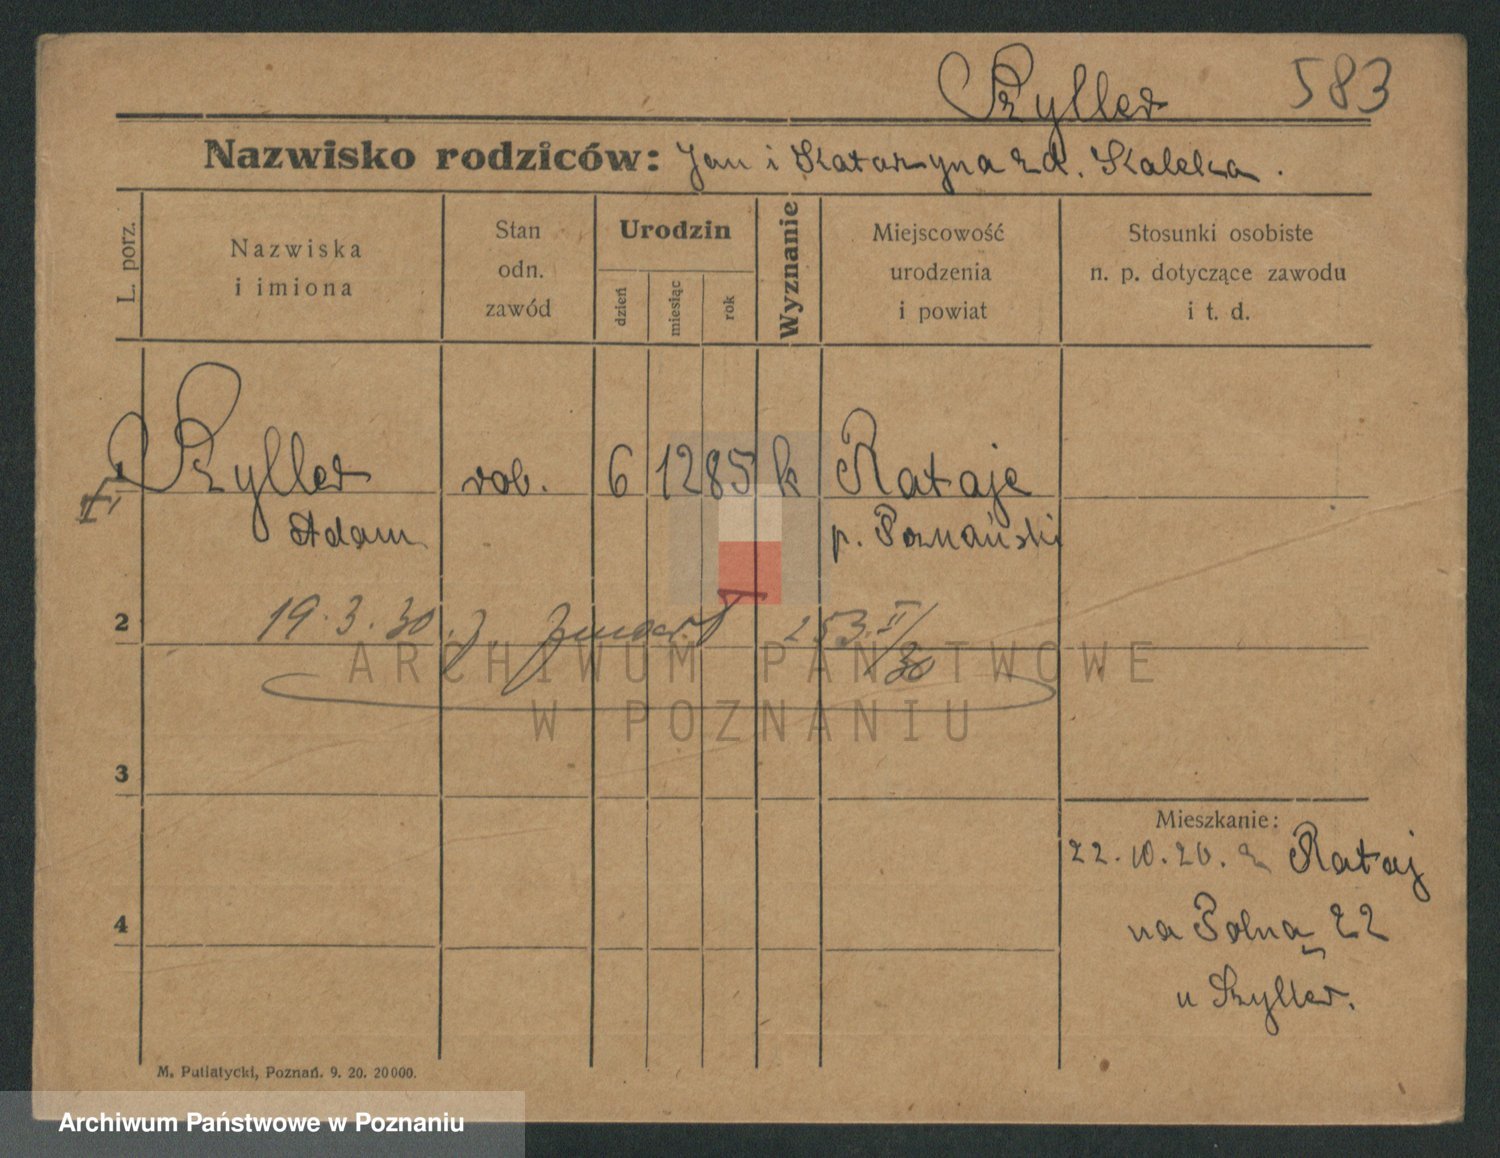 Szyller 583
Nazwisko rodziców: Jan i Katarzyna zd. Kaleka.
L. porz.
Nazwiska
i imiona
Stan
odn.
zawód
Urodzin
dzień
miesiąc
rok
Wyznanie
Miejscowość
urodzenia
i powiat
Stosunki osobiste
n. p. dotyczące zawodu
i t. d.
1 Szyller rob. 6 12 85 k Rataje
Adam p. Poznański
2 19.3.30. 253.II/30
ARCHIWUM PAŃSTWOWE
W POZNANIU
3
Mieszkanie:
22.10.20. z Rataj
4 na Polną 22
u Szyller.
M. Putiatycki, Poznań. 9. 20. 20000.
Archiwum Państwowe w Poznaniu